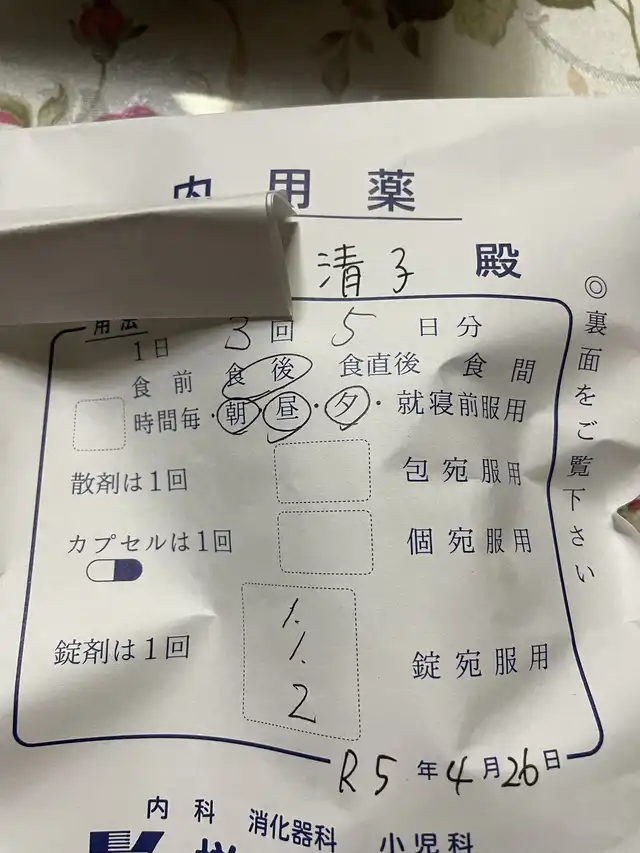 内用薬
清子 殿
用法
1日 3回 5日分
食前 食後 食直後 食間
時間毎・朝・昼・夕・就寝前服用
散剤は1回 包宛服用
カプセルは1回 個宛服用
錠剤は1回 1. 1. 2 錠宛服用
R5年4月26日
◎裏面をご覧下さい
内科 消化器科 小児科